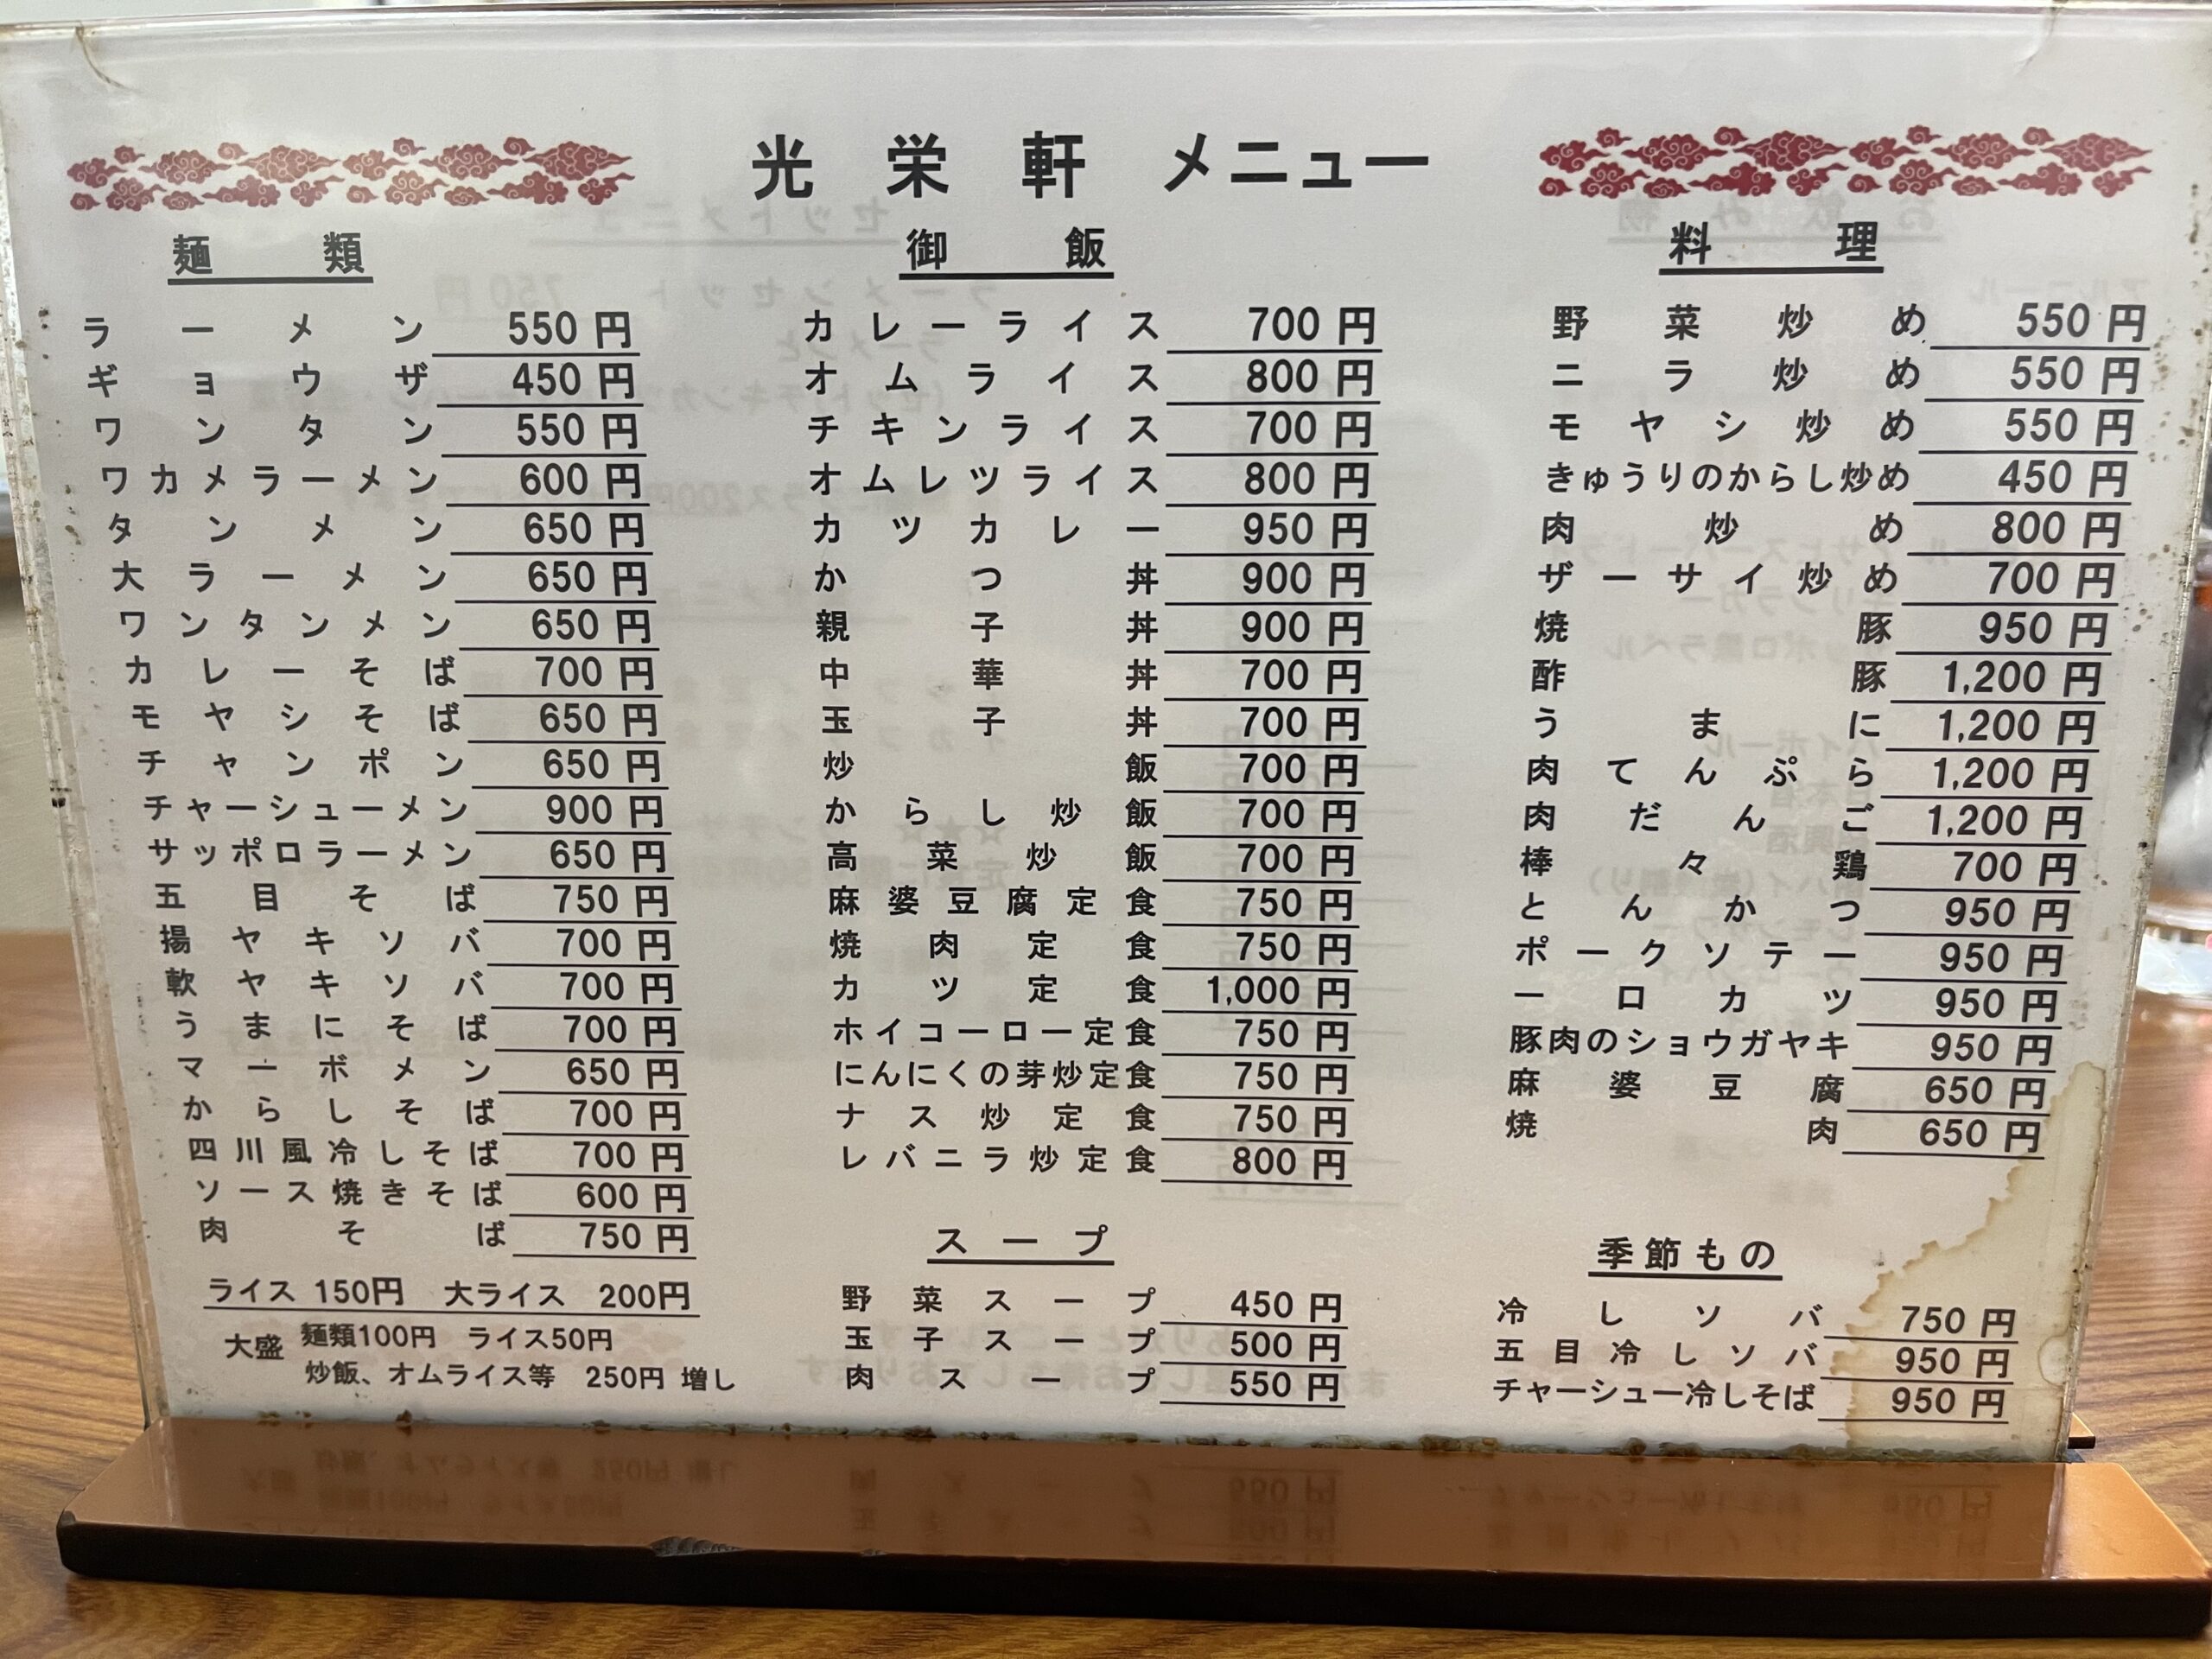 光栄軒 メニュー
麺類
ラーメン 550円
ギョウザ 450円
ワンタン 550円
ワカメラーメン 600円
タンメン 650円
大ラーメン 650円
ワンタンメン 650円
カレーそば 700円
モヤシそば 650円
チャンポン 650円
チャーシューメン 900円
サッポロラーメン 650円
五目そば 750円
揚ヤキソバ 700円
軟ヤキソバ 700円
うまにそば 700円
マーボメン 650円
からしそば 700円
四川風冷しそば 700円
ソース焼きそば 600円
肉そば 750円
ライス 150円 大ライス 200円
大盛 麺類100円 ライス50円
炒飯、オムライス等 250円 増し
御飯
カレーライス 700円
オムライス 800円
チキンライス 700円
オムレツライス 800円
カツカレー 950円
かつ丼 900円
親子丼 900円
中華丼 700円
玉子丼 700円
炒飯 700円
からし炒飯 700円
高菜炒飯 700円
麻婆豆腐定食 750円
焼肉定食 750円
カツ定食 1,000円
ホイコーロー定食 750円
にんにくの芽炒定食 750円
ナス炒定食 750円
レバニラ炒定食 800円
スープ
野菜スープ 450円
玉子スープ 500円
肉スープ 550円
料理
野菜炒め 550円
ニラ炒め 550円
モヤシ炒め 550円
きゅうりのからし炒め 450円
肉炒め 800円
ザーサイ炒め 700円
焼豚 950円
酢豚 1,200円
うまに 1,200円
肉てんぷら 1,200円
肉だんご 1,200円
棒々鶏 700円
とんかつ 950円
ポークソテー 950円
一口カツ 950円
豚肉のショウガヤキ 950円
麻婆豆腐 650円
焼肉 650円
季節もの
冷しソバ 750円
五目冷しソバ 950円
チャーシュー冷しそば 950円